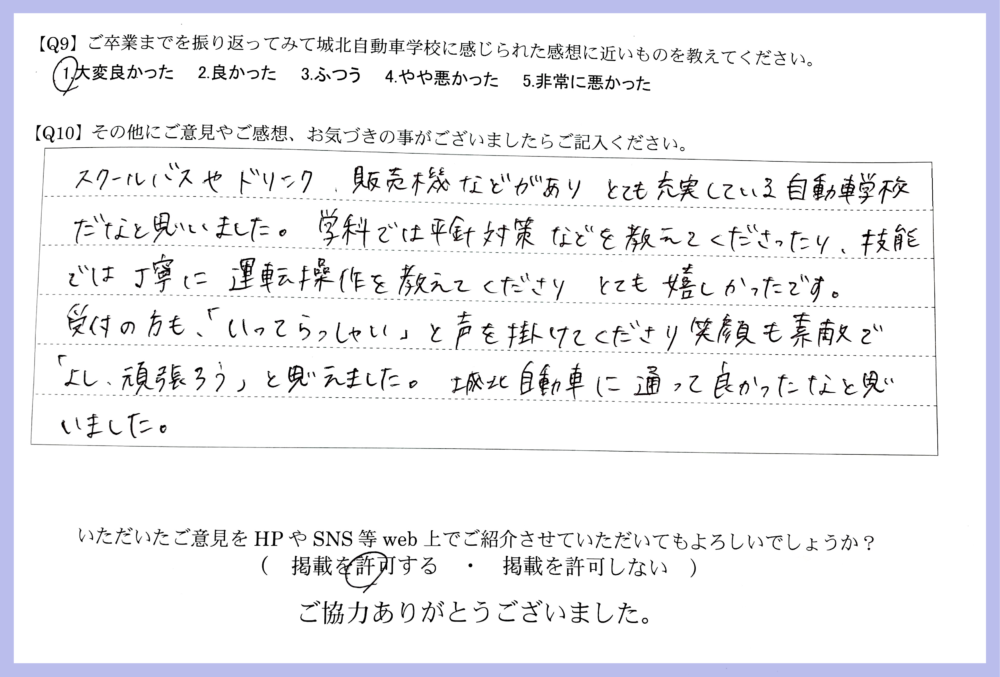 【Q9】ご卒業までを振り返ってみて城北自動車学校に感じられた感想に近いものを教えてください。
1.大変良かった 2.良かった 3.ふつう 4.やや悪かった 5.非常に悪かった
【Q10】その他にご意見やご感想、お気づきの事がございましたらご記入ください。
スクールバスやドリンク、販売機などがあり とても充実している自動車学校
だなと思いいました。学科では平針対策などを教えてくださったり、技能
では丁寧に運転操作を教えてくださり とても嬉しかったです。
受付の方も、「いってらっしゃい」と声を掛けてくださり笑顔も素敵で
「よし、頑張ろう」と思えました。城北自動車に通って良かったなと思
いました。
いただいたご意見をHPやSNS等web上でご紹介させていただいてもよろしいでしょうか?
( 掲載を許可する ・ 掲載を許可しない )
ご協力ありがとうございました。